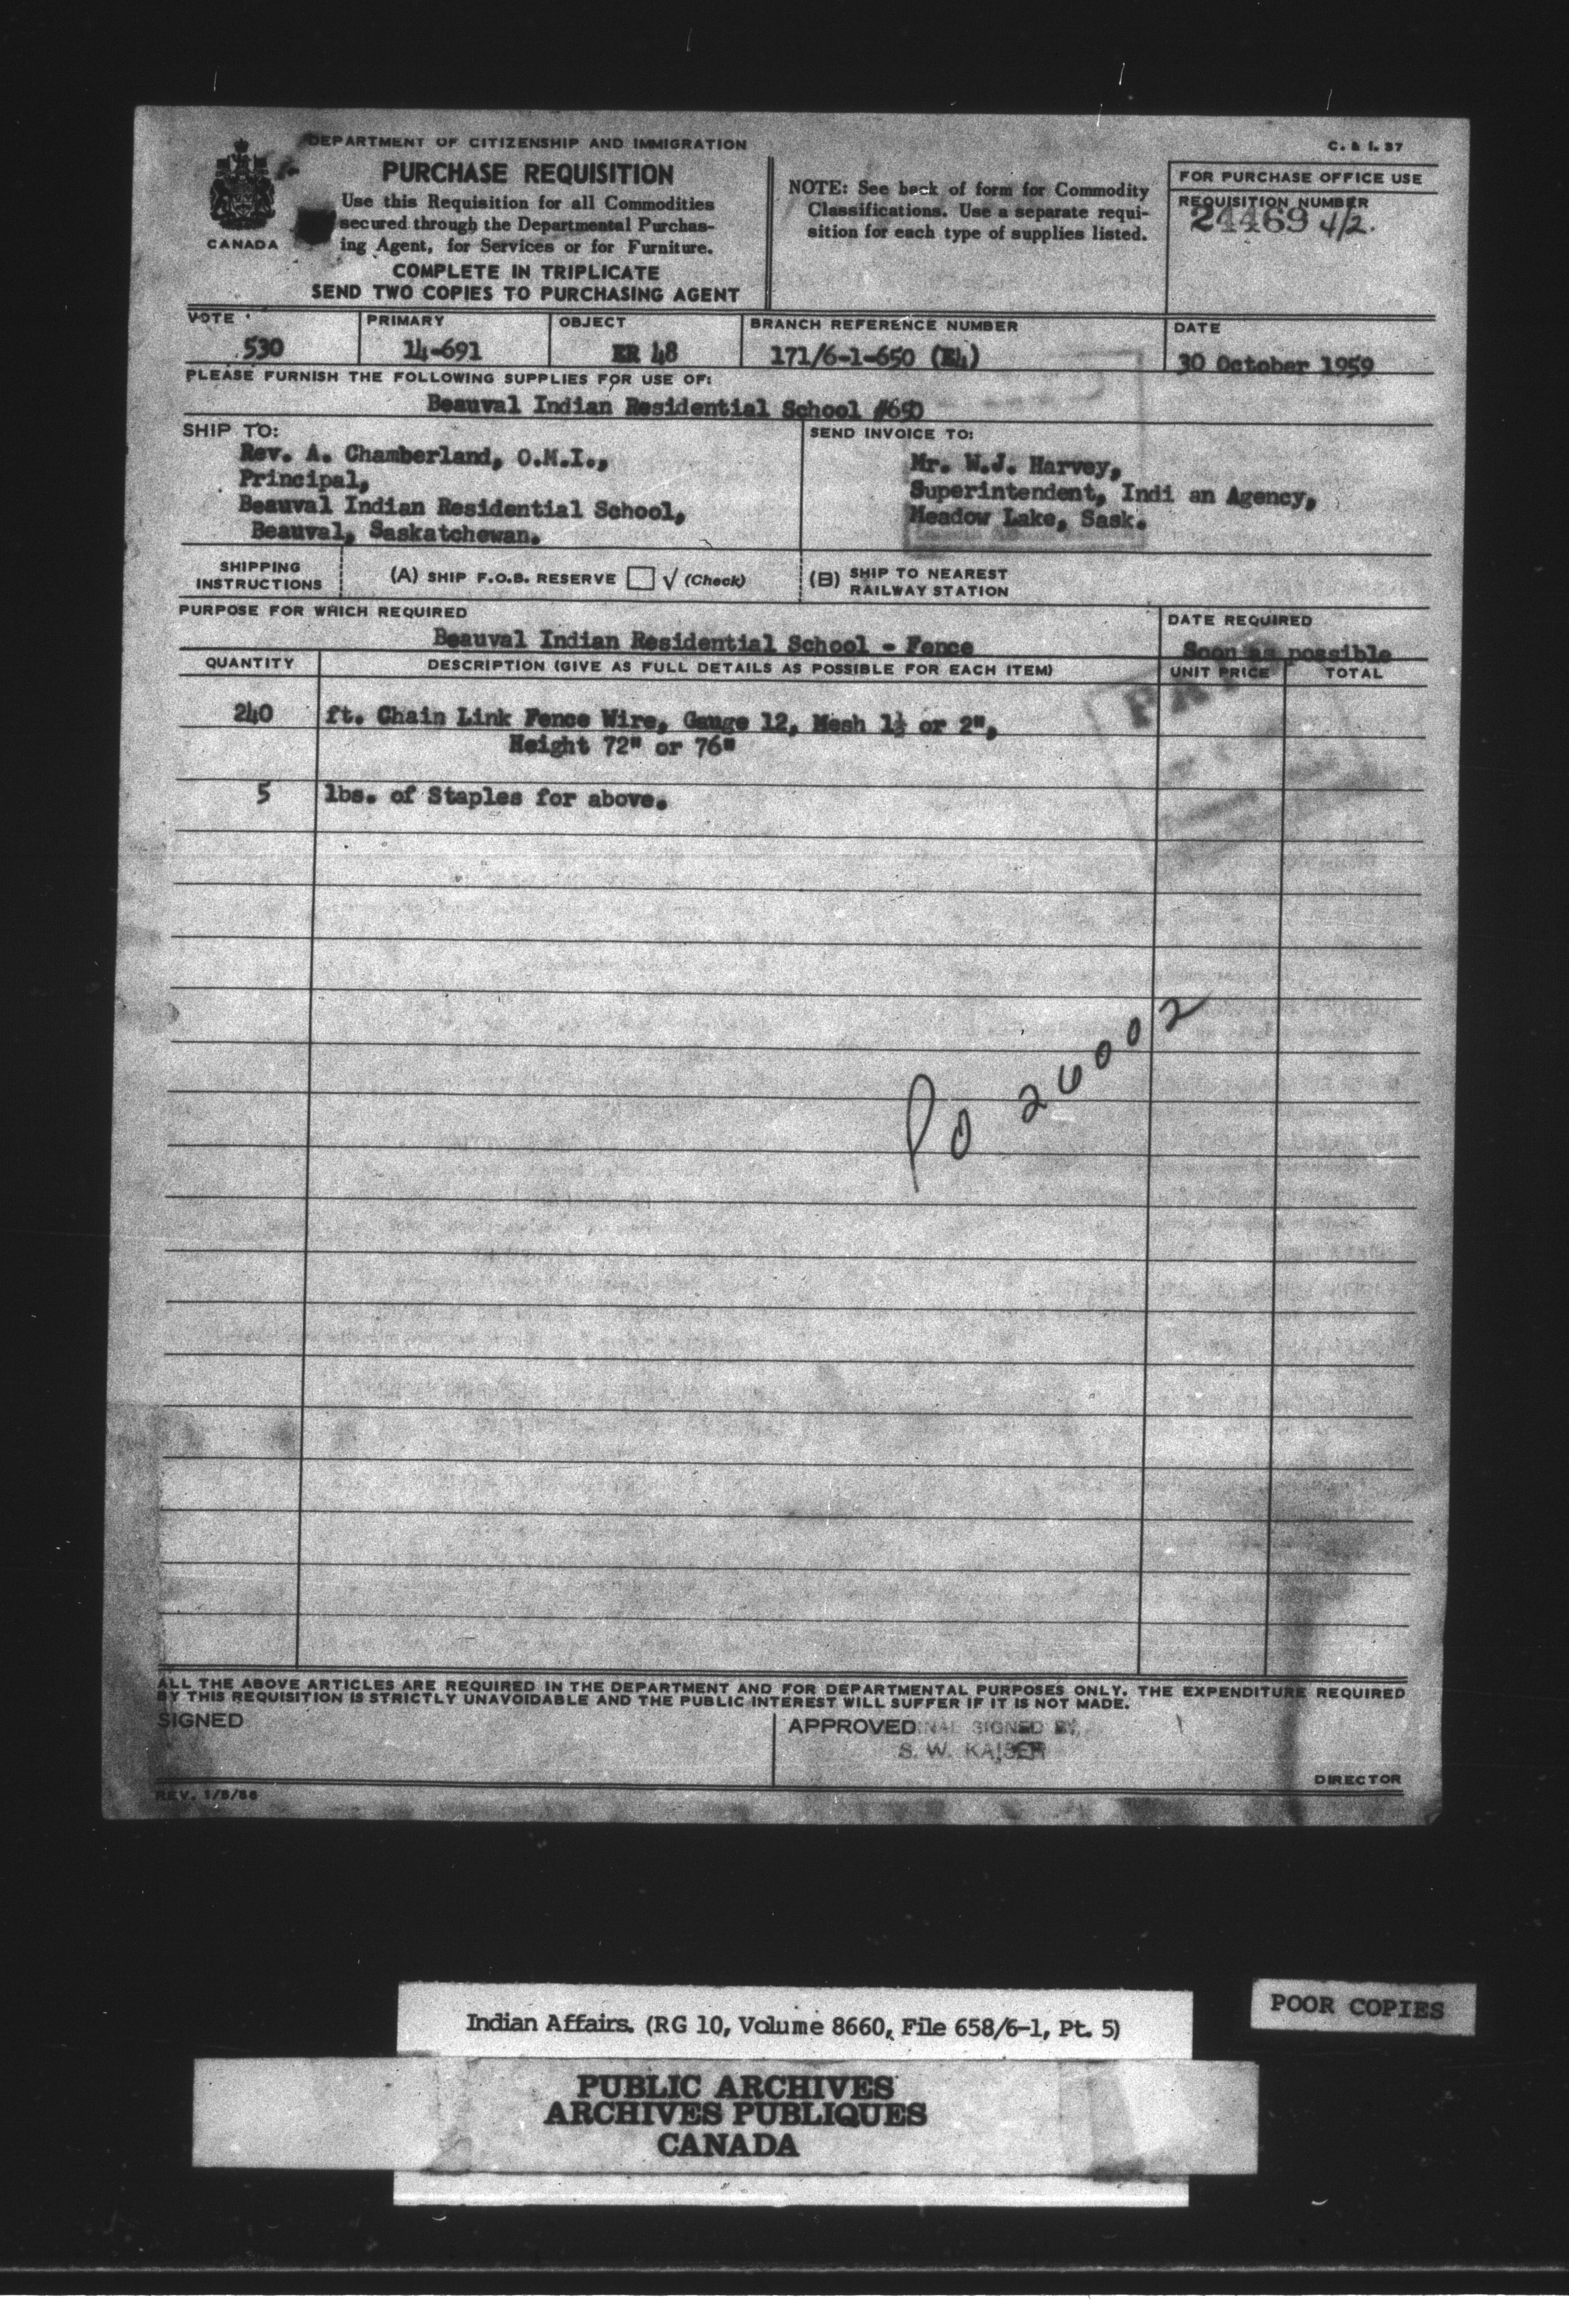 DEPARTMENT OF CITIZENSHIP AND IMMIGRATION
C. & I. 37
PURCHASE REQUISITION
Use this Requisition for all Commodities
secured through the Departmental Purchas-
ing Agent, for Services or for Furniture.
COMPLETE IN TRIPLICATE
SEND TWO COPIES TO PURCHASING AGENT
CANADA
NOTE: See back of form for Commodity
Classifications. Use a separate requi-
sition for each type of supplies listed.
FOR PURCHASE OFFICE USE
REQUISITION NUMBER
24469 4/2.
VOTE PRIMARY OBJECT BRANCH REFERENCE NUMBER DATE
530 14-691 ER 48 171/6-1-650 (E4) 30 October 1959
PLEASE FURNISH THE FOLLOWING SUPPLIES FOR USE OF:
Beauval Indian Residential School #650
SHIP TO:
Rev. A. Chamberland, O.M.I.,
Principal,
Beauval Indian Residential School,
Beauval, Saskatchewan.
SEND INVOICE TO:
Mr. W.J. Harvey,
Superintendent, Indi an Agency,
Meadow Lake, Sask.
SHIPPING
INSTRUCTIONS
(A) SHIP F.O.B. RESERVE √ (Check)
(B) SHIP TO NEAREST
RAILWAY STATION
PURPOSE FOR WHICH REQUIRED
Beauval Indian Residential School - Fence
DATE REQUIRED
Soon as possible
QUANTITY DESCRIPTION (GIVE AS FULL DETAILS AS POSSIBLE FOR EACH ITEM) UNIT PRICE TOTAL
240 ft. Chain Link Fence Wire, Gauge 12, Mesh 1½ or 2",
Height 72" or 76"
5 lbs. of Staples for above.
PO 26002
ALL THE ABOVE ARTICLES ARE REQUIRED IN THE DEPARTMENT AND FOR DEPARTMENTAL PURPOSES ONLY. THE EXPENDITURE REQUIRED
BY THIS REQUISITION IS STRICTLY UNAVOIDABLE AND THE PUBLIC INTEREST WILL SUFFER IF IT IS NOT MADE.
SIGNED
APPROVED
SIGNED BY
S. W. KAISER
DIRECTOR
REV. 1/5/56
Indian Affairs. (RG 10, Volume 8660, File 658/6-1, Pt. 5)
POOR COPIES
PUBLIC ARCHIVES
ARCHIVES PUBLIQUES
CANADA